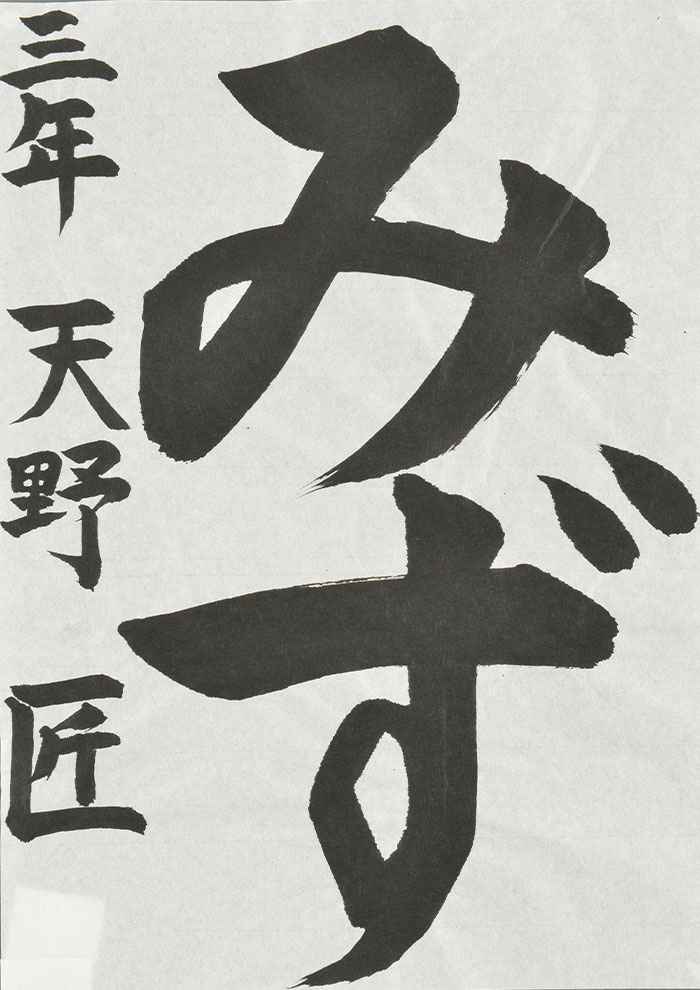 みず
三年 天野 匠